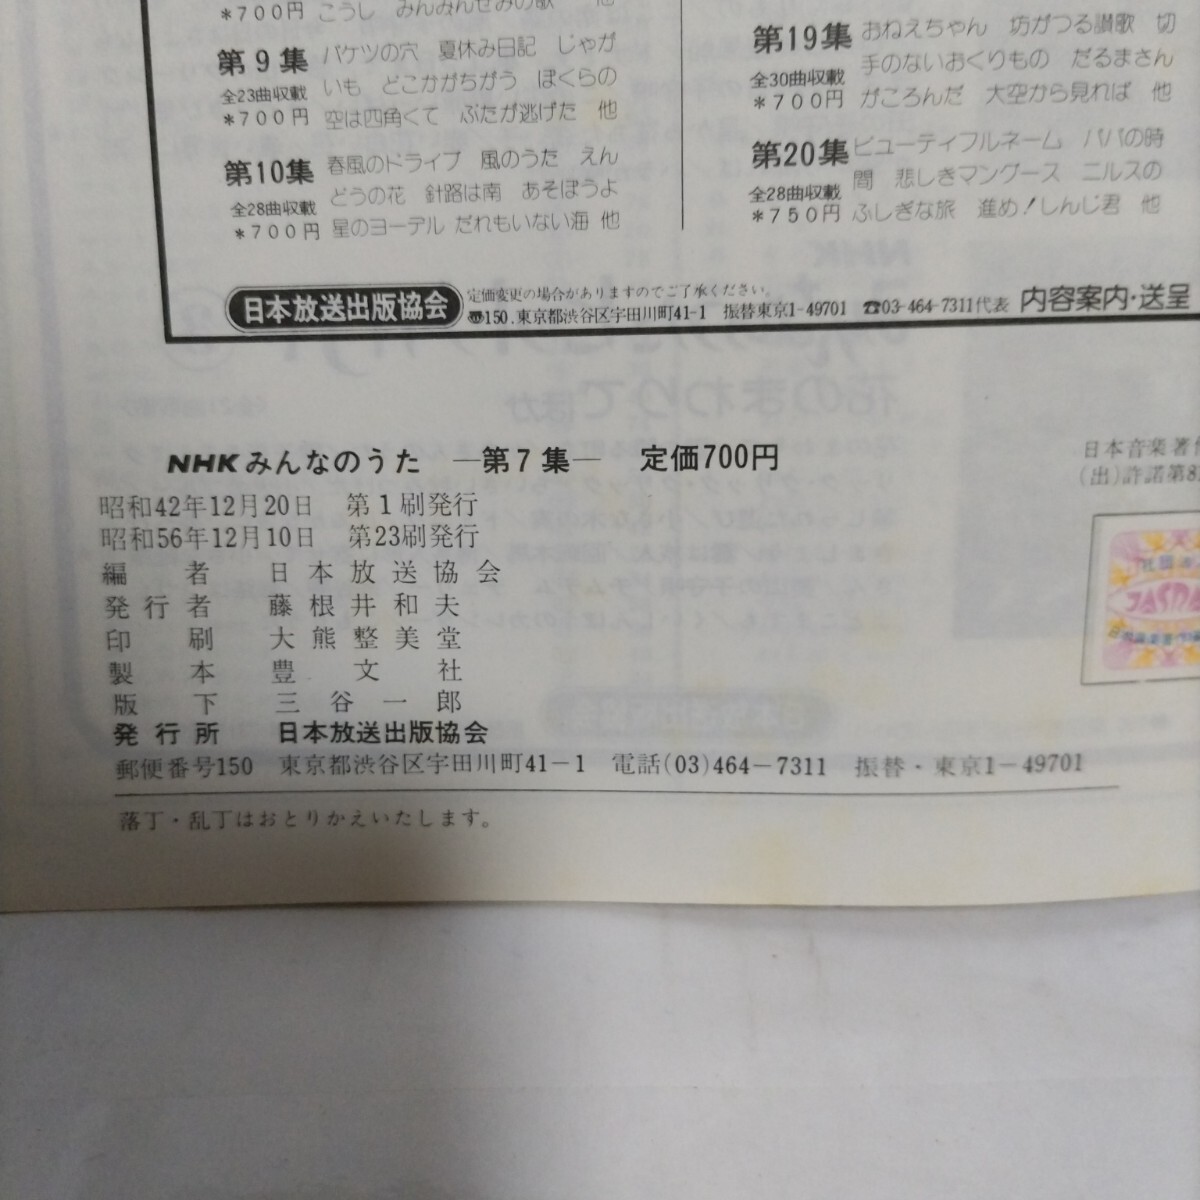 *700円 こうし みんみんぜみの歌 他
第9集 バケツの穴 夏休み日記 じゃが
全23曲収載 いも どこかがちがう ぼくらの
*700円 空は四角くて ぶたが逃げた 他
第10集 春風のドライブ 風のうた えん
全28曲収載 どうの花 針路は南 あそぼうよ
*700円 星のヨーデル だれもいない海 他
第19集 おねえちゃん 坊がつる讃歌 切
全30曲収載 手のないおくりもの だるまさん
*700円 がころんだ 大空から見れば 他
第20集 ビューティフルネーム パパの時
全28曲収載 間 悲しきマングース ニルスの
*750円 ふしぎな旅 進め!しんじ君 他
日本放送出版協会 定価変更の場合がありますのでご了承ください。
〠150.東京都渋谷区宇田川町41-1 振替東京1-49701 ☎03-464-7311代表 内容案内・送呈
NHKみんなのうた —第7集— 定価700円
昭和42年12月20日 第1刷発行
昭和56年12月10日 第23刷発行
編者 日本放送協会
発行者 藤根井和夫
印刷 大熊整美堂
製本 豊文社
版下 三谷一郎
発行所 日本放送出版協会
郵便番号150 東京都渋谷区宇田川町41-1 電話(03)464-7311 振替・東京1-49701
落丁・乱丁はおとりかえいたします。
日本音楽著作
(出)許諾第8